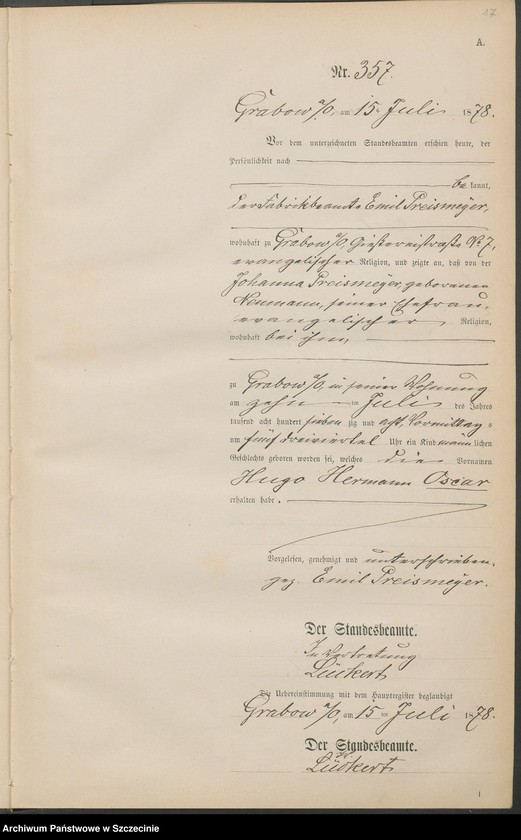 17
A.
Nr. 357.
Grabow a/O, am 15ten Juli 1878.
Vor dem unterzeichneten Standesbeamten erschien heute, der
Persönlichkeit nach
be kannt,
der Fabrikbeamte Emil Preismeÿer,
wohnhaft zu Grabow a/O, Giessereistraße No 7,
evangelischer Religion, und zeigte an, daß von der
Johanna Preismeÿer, geborenen
Neumann, seiner Ehefrau,
evangelischer Religion,
wohnhaft bei ihm,
zu Grabow a/O, in seiner Wohnung
am zehn ten Juli des Jahres
tausend acht hundert sieben zig und acht, Vormittag s
um fünf dreiviertel Uhr ein Kind männ lichen
Geschlechts geboren worden sei, welches die Vornamen
Hugo Hermann Oscar
erhalten habe.
Vorgelesen, genehmigt und unterschrieben.
gez. Emil Preismeÿer.
Der Standesbeamte.
In Vertretung
Lückert
Die Uebereinstimmung mit dem Hauptregister beglaubigt
Grabow a/O, am 15 ten Juli 1878.
Der Standesbeamte.
Lückert
1
Archiwum Państwowe w Szczecinie